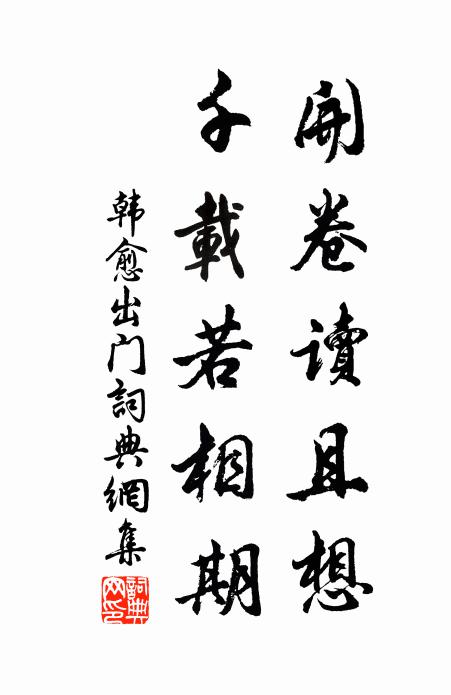 開卷讀且想
千載若相期
韩愈出门詞典網集
詞典
网印